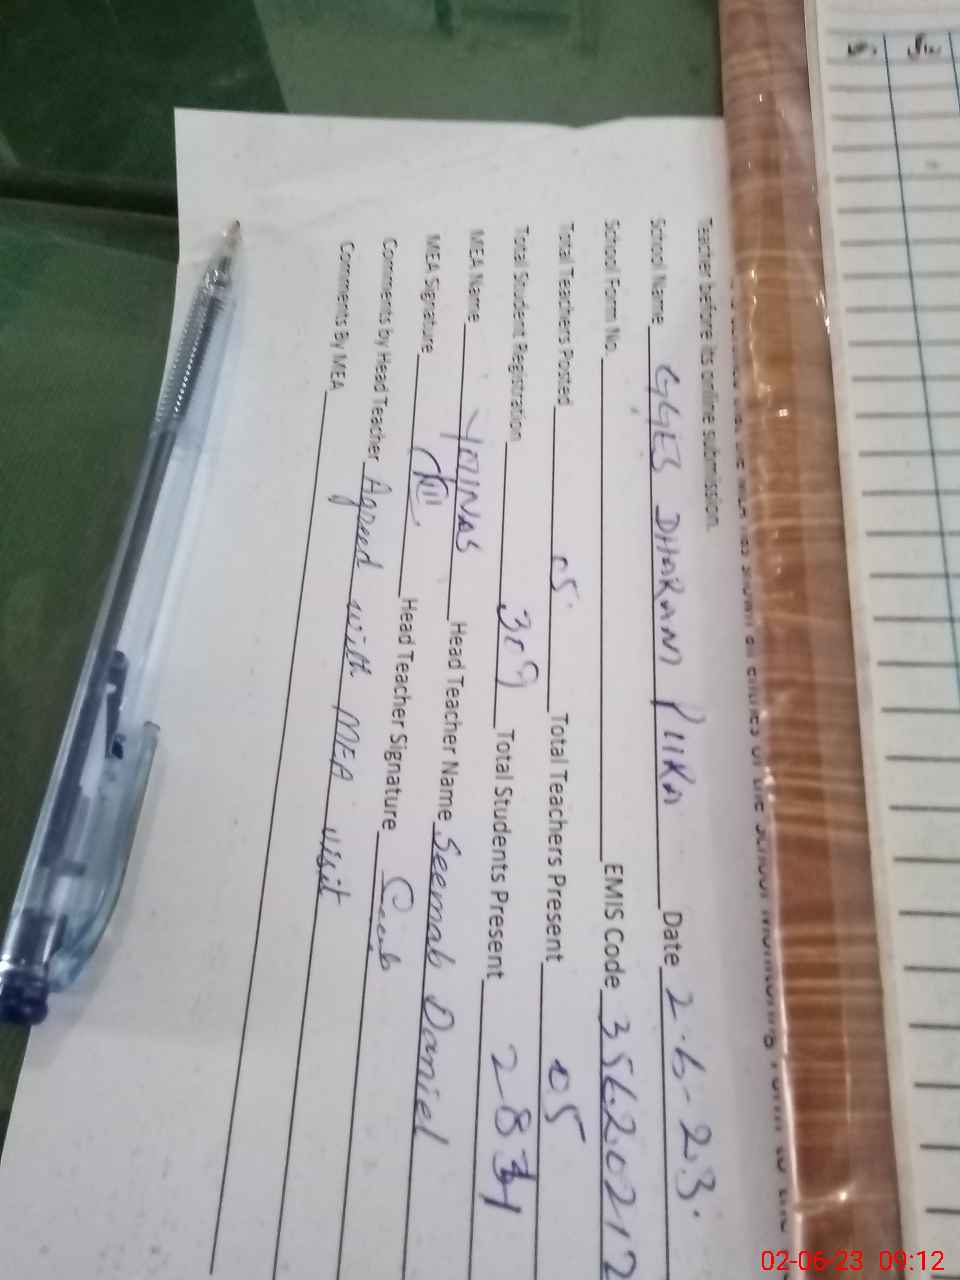 Teacher before its online submission.
School Name GGES DHARAM PURA Date 2-6-23.
School Form No. EMIS Code 35620212
Total Teachers Posted 05. Total Teachers Present 05
Total Student Registration 309 Total Students Present 281
MEA Name YOUNAS Head Teacher Name Seemab Daniel
MEA Signature Head Teacher Signature Seemab
Comments by Head Teacher Agreed with MEA visit
Comments By MEA
02-06-23 09:12